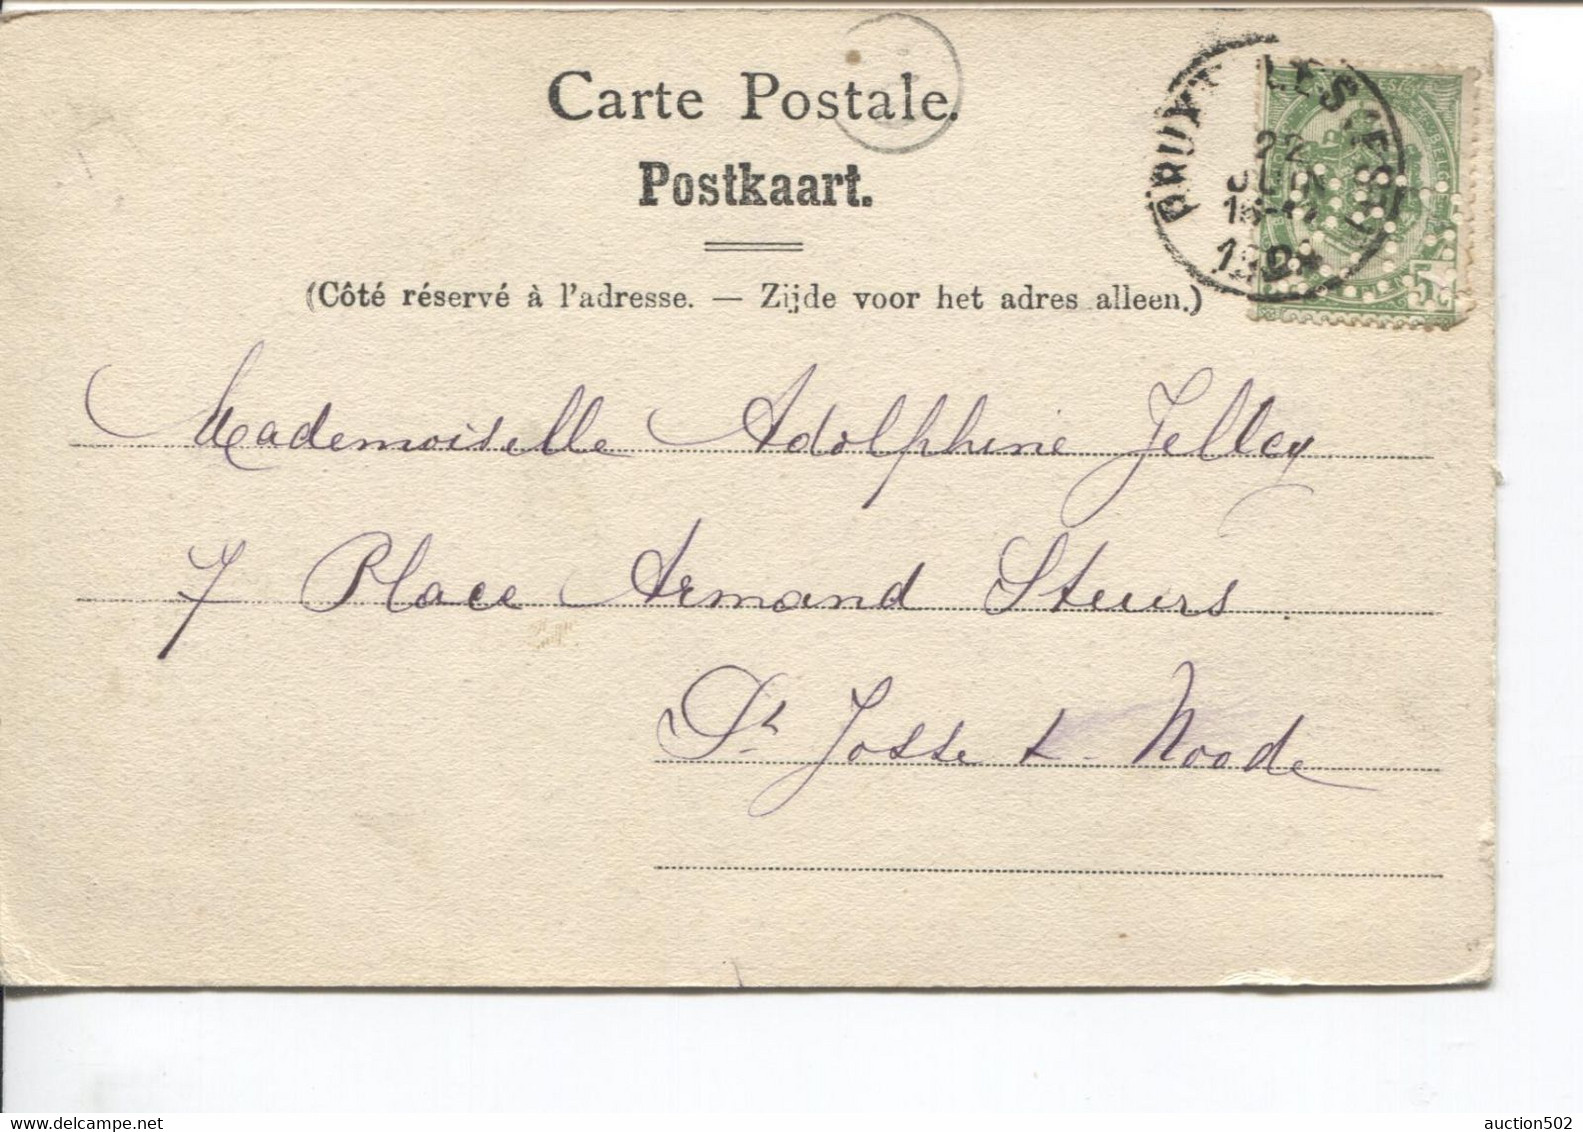 Carte Postale.
Postkaart.
(Côté réservé à l'adresse. — Zijde voor het adres alleen.)
22
Mademoiselle Adolphine Jelley
7 Place Armand Steurs
St Josse t. Noode
www.delcampe.net
auction502